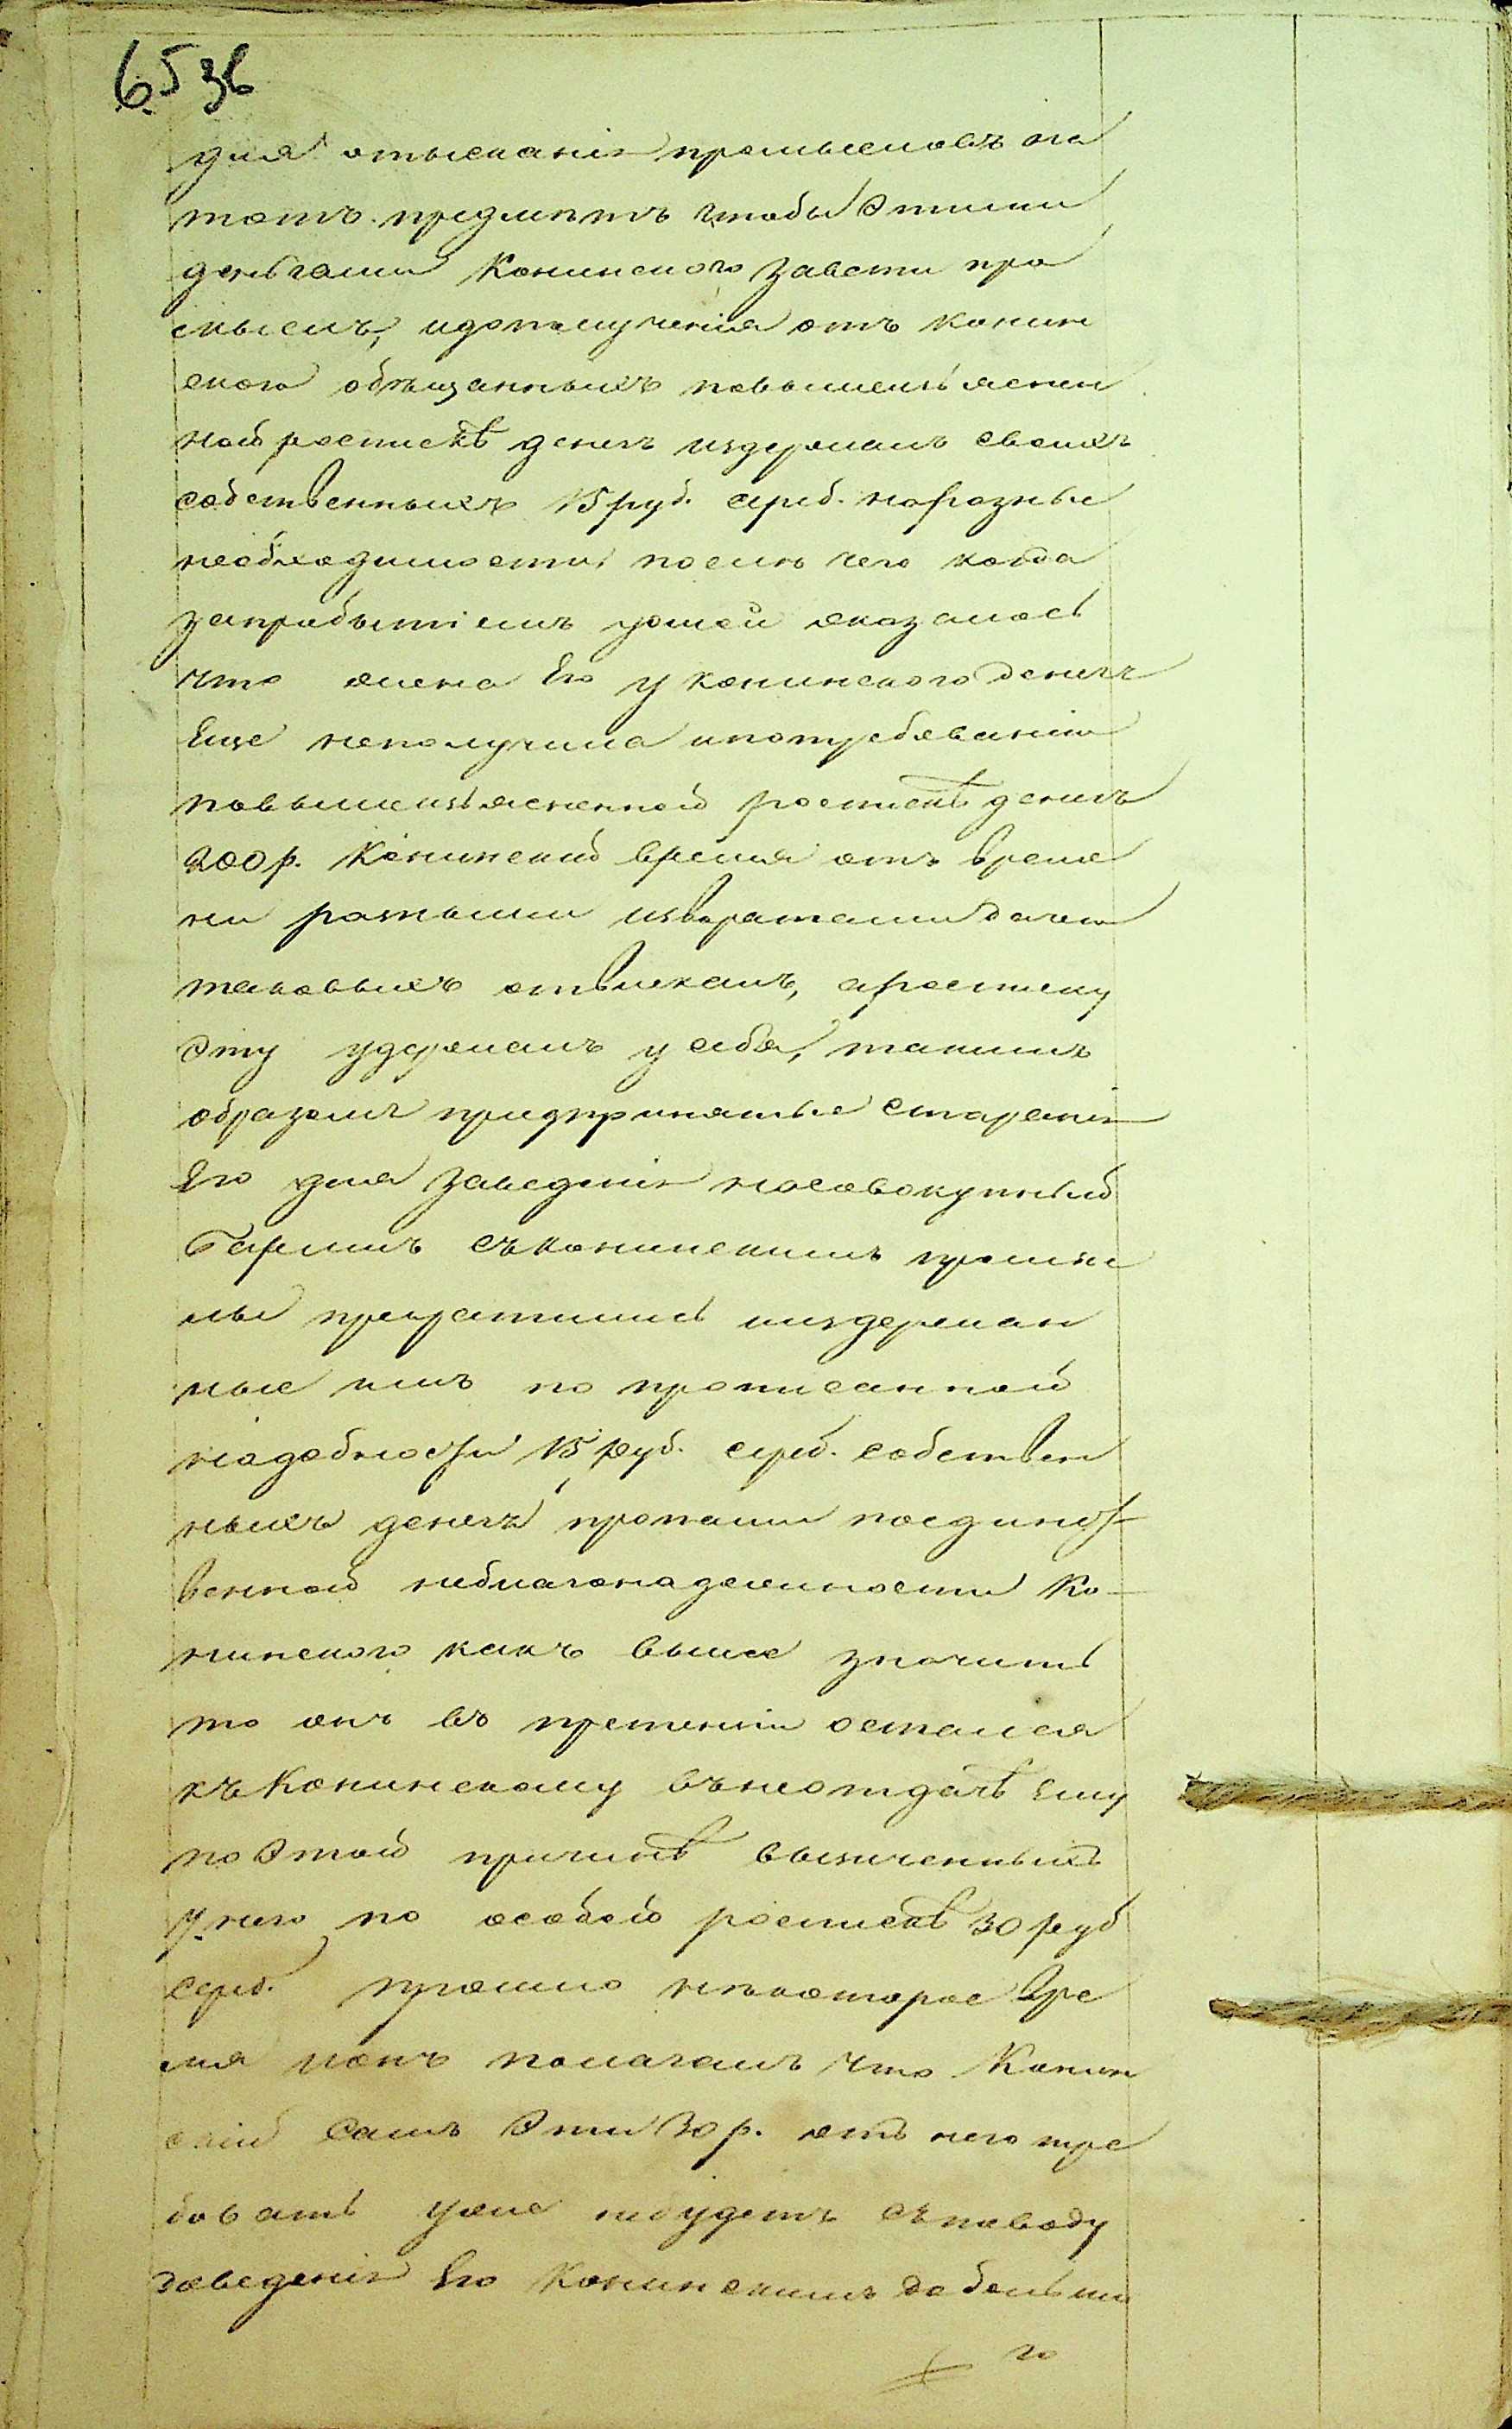 65 зв
для отысканія промысловъ на
тотъ предмѣтъ чтобы этими
деньгами Конинского завести про
мыселъ, идополученія отъ Конин
ского обѣщанныхъ повышеизъяснен
ной роспискѣ денегъ издержалъ своихъ
собственныхъ 15 руб. сереб. наразные
необходимости, послѣ чего когда
заприбытіемъ домой оказалось
что жена Его у Конинского денегъ
Еще неполучила ипотребованію
повышеизъясненной роспискѣ денегъ
200 р. Конинский время отъ време
ни разными изворотами дачею
таковыхъ отвлекалъ, аросписку
эту удержалъ у себя, такимъ
образомъ предпринятые старанія
Его для заведенія насовокупный
Тармилъ съ Конинскимъ промы
слы прекратились ииздержан
ные имъ по прописанной
надобности 15 руб. сереб. собствен
ныхъ денегъ пропали поединст
венной неблагонадежности Ко-
нинского какъ выше значитъ
то онъ въ претензіи остался
къ Конинскому въ неотдачѣ ему
по этой причинѣ
у него по особой роспискѣ 30 руб
сереб. прошло нѣкоторое вре
мя ионъ полагалъ что Конин
скій самъ эти 30 р. отъ него тре
бовать уже небудетъ съ поводу
доведенія Его Конинскимъ до больша
го